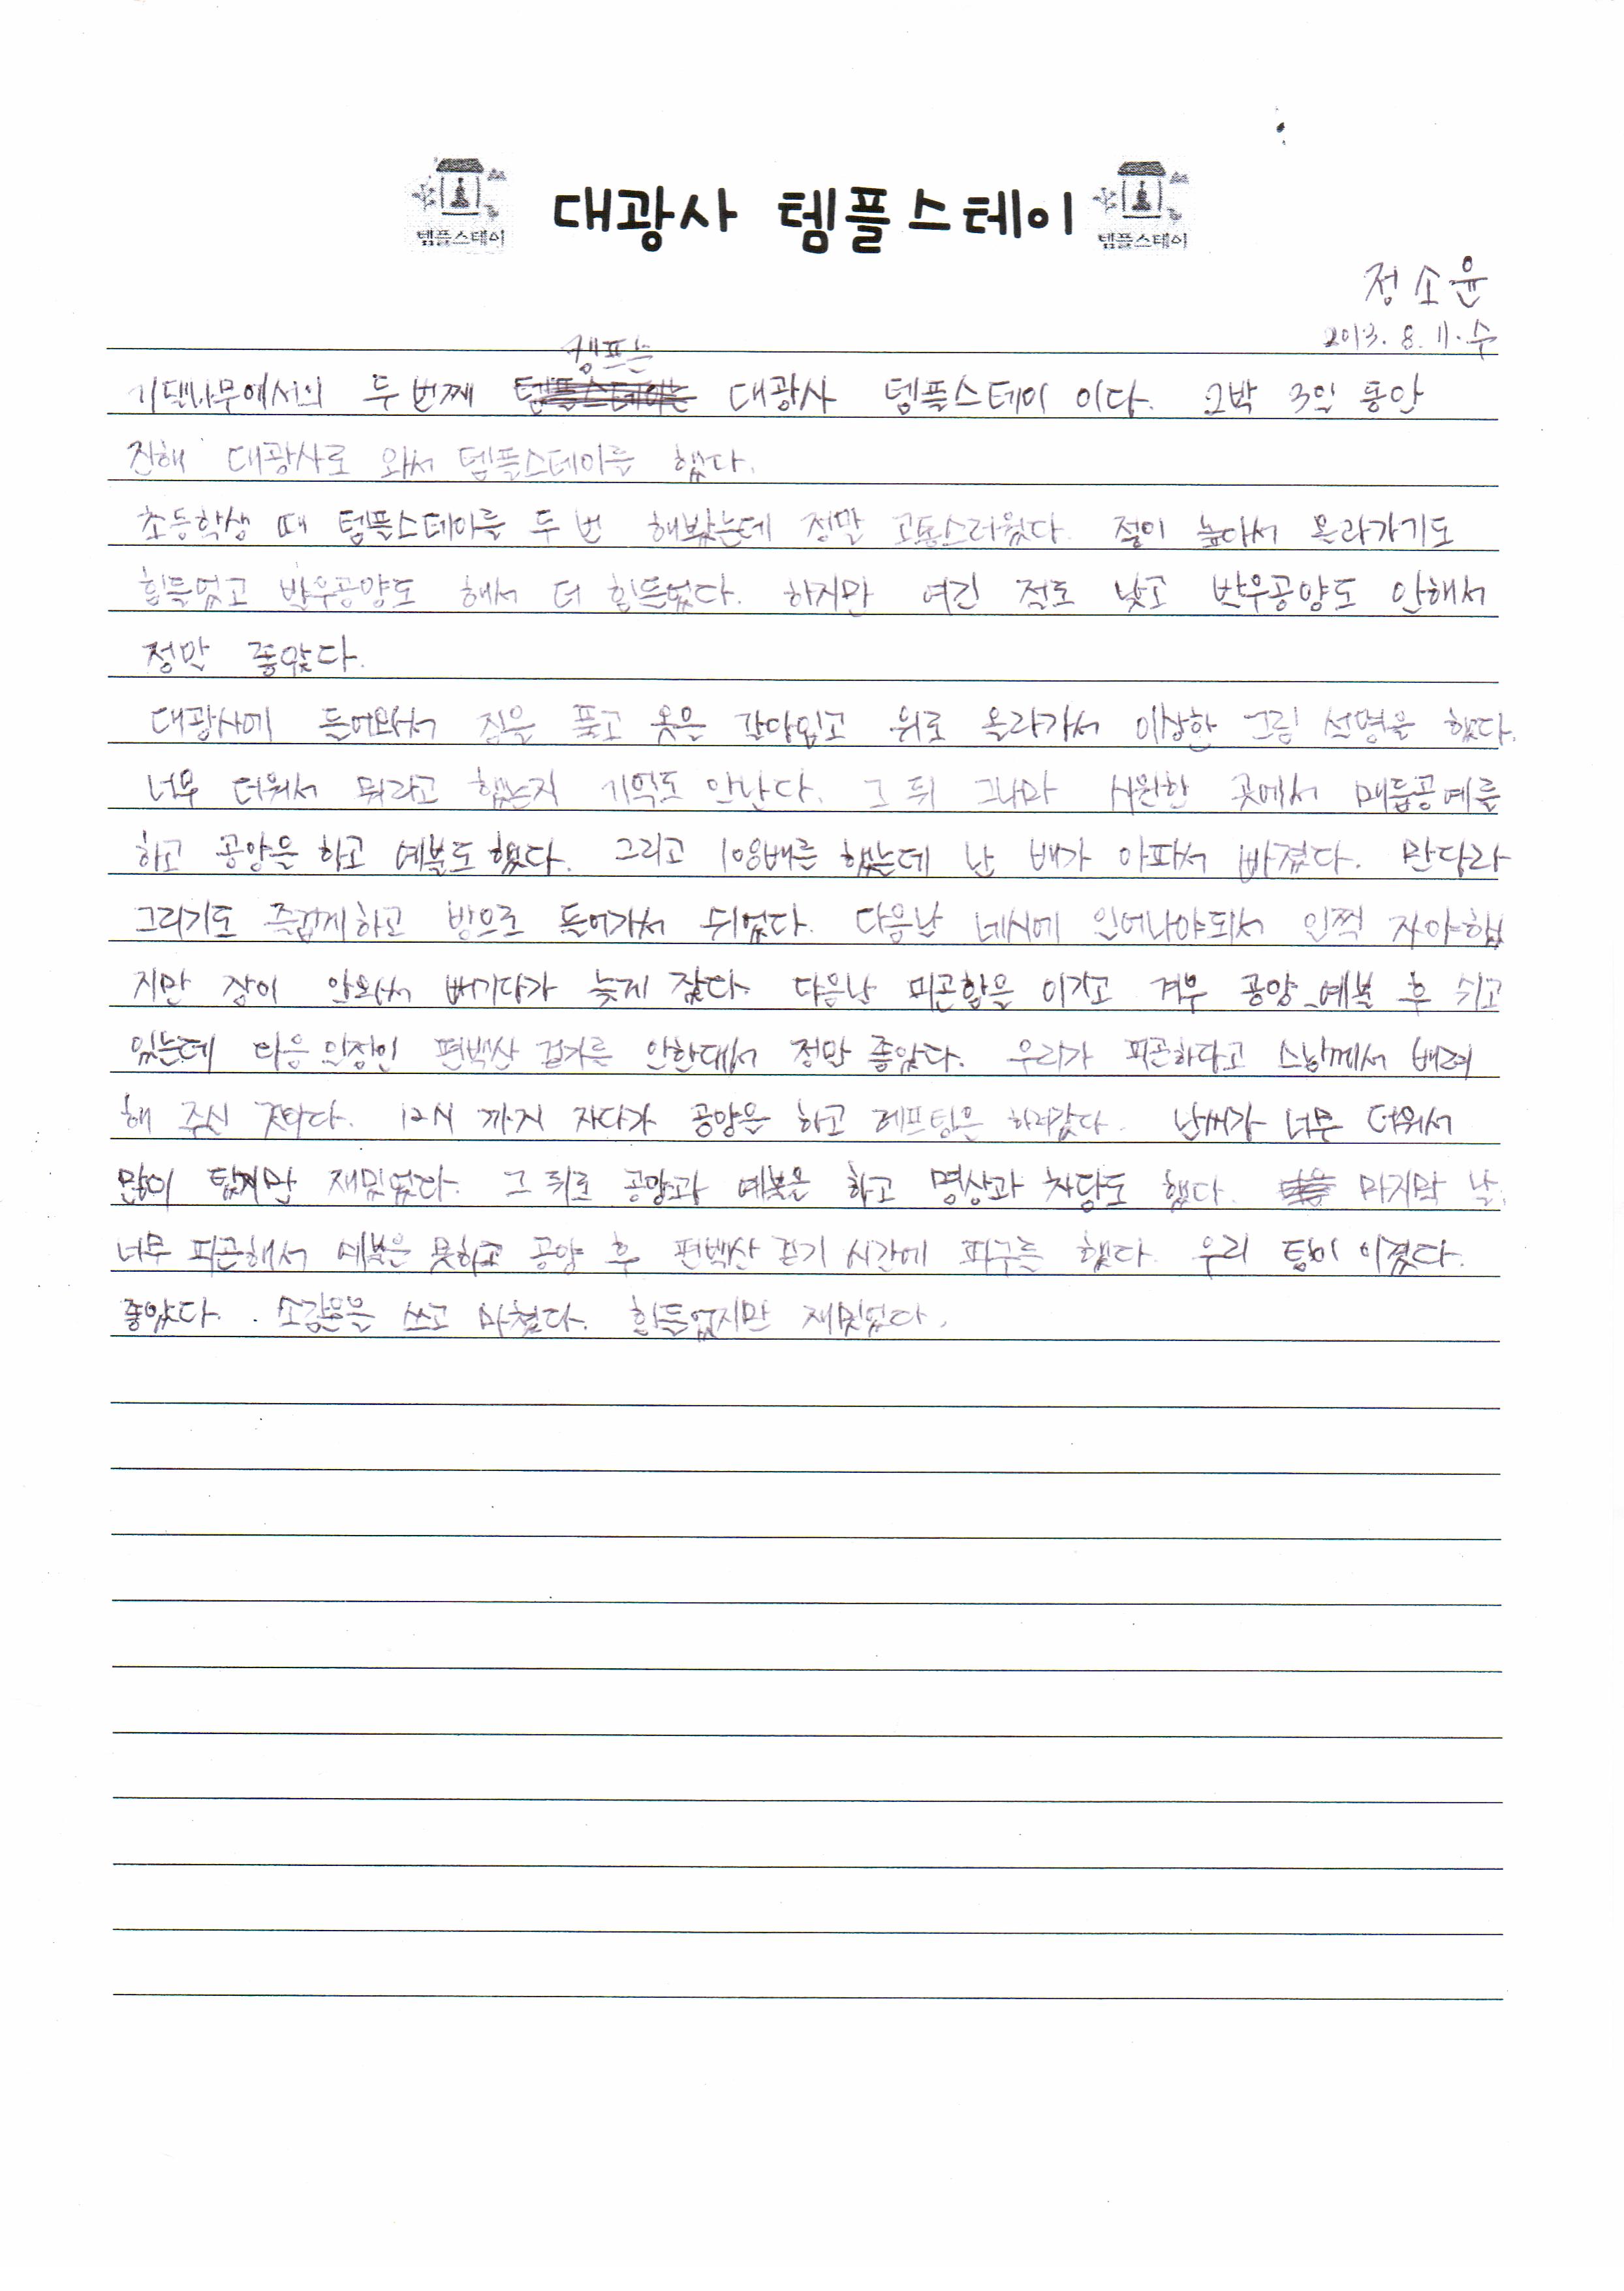 템플스테이 대광사 템플스테이 템플스테이
정소윤
2013. 8. 11. 수
캠프는
기댈나무에서의 두 번째 대광사 템플스테이 이다. 2박 3일 동안
진해 대광사로 와서 템플스테이를 했다.
초등학생 때 템플스테이를 두 번 해봤는데 정말 고통스러웠다. 절이 높아서 올라가기도
힘들었고 발우공양도 해서 더 힘들었다. 하지만 여긴 절도 낮고 발우공양도 안해서
정말 좋았다.
대광사에 들어와서 짐을 풀고 옷을 갈아입고 위로 올라가서 이상한 그림 설명을 했다.
너무 더워서 뭐라고 했는지 기억도 안난다. 그 뒤 그나마 시원한 곳에서 매듭공예를
하고 공양을 하고 예불도 했다. 그리고 108배를 했는데 난 배가 아파서 빠졌다. 만다라
그리기도 즐겁게하고 방으로 들어가서 쉬었다. 다음날 네시에 일어나야되서 일찍 자야했
지만 잠이 안와서 버기다가 늦게 잤다. 다음날 피곤함을 이기고 겨우 공양 예불 후 쉬고
있는데 다음 일정인 편백산 걷기를 안한대서 정말 좋았다. 우리가 피곤하다고 스님께서 배려
해 주신 것이다. 12시 까지 자다가 공양을 하고 레프팅을 하러갔다. 날씨가 너무 더워서
많이 탔지만 재밌었다. 그 뒤로 공양과 예불을 하고 명상과 차담도 했다. 마지막 날.
너무 피곤해서 예불은 못하고 공양 후 편백산 걷기 시간에 피구를 했다. 우리 팀이 이겼다.
좋았다. 소감문을 쓰고 마쳤다. 힘들었지만 재밌었다.